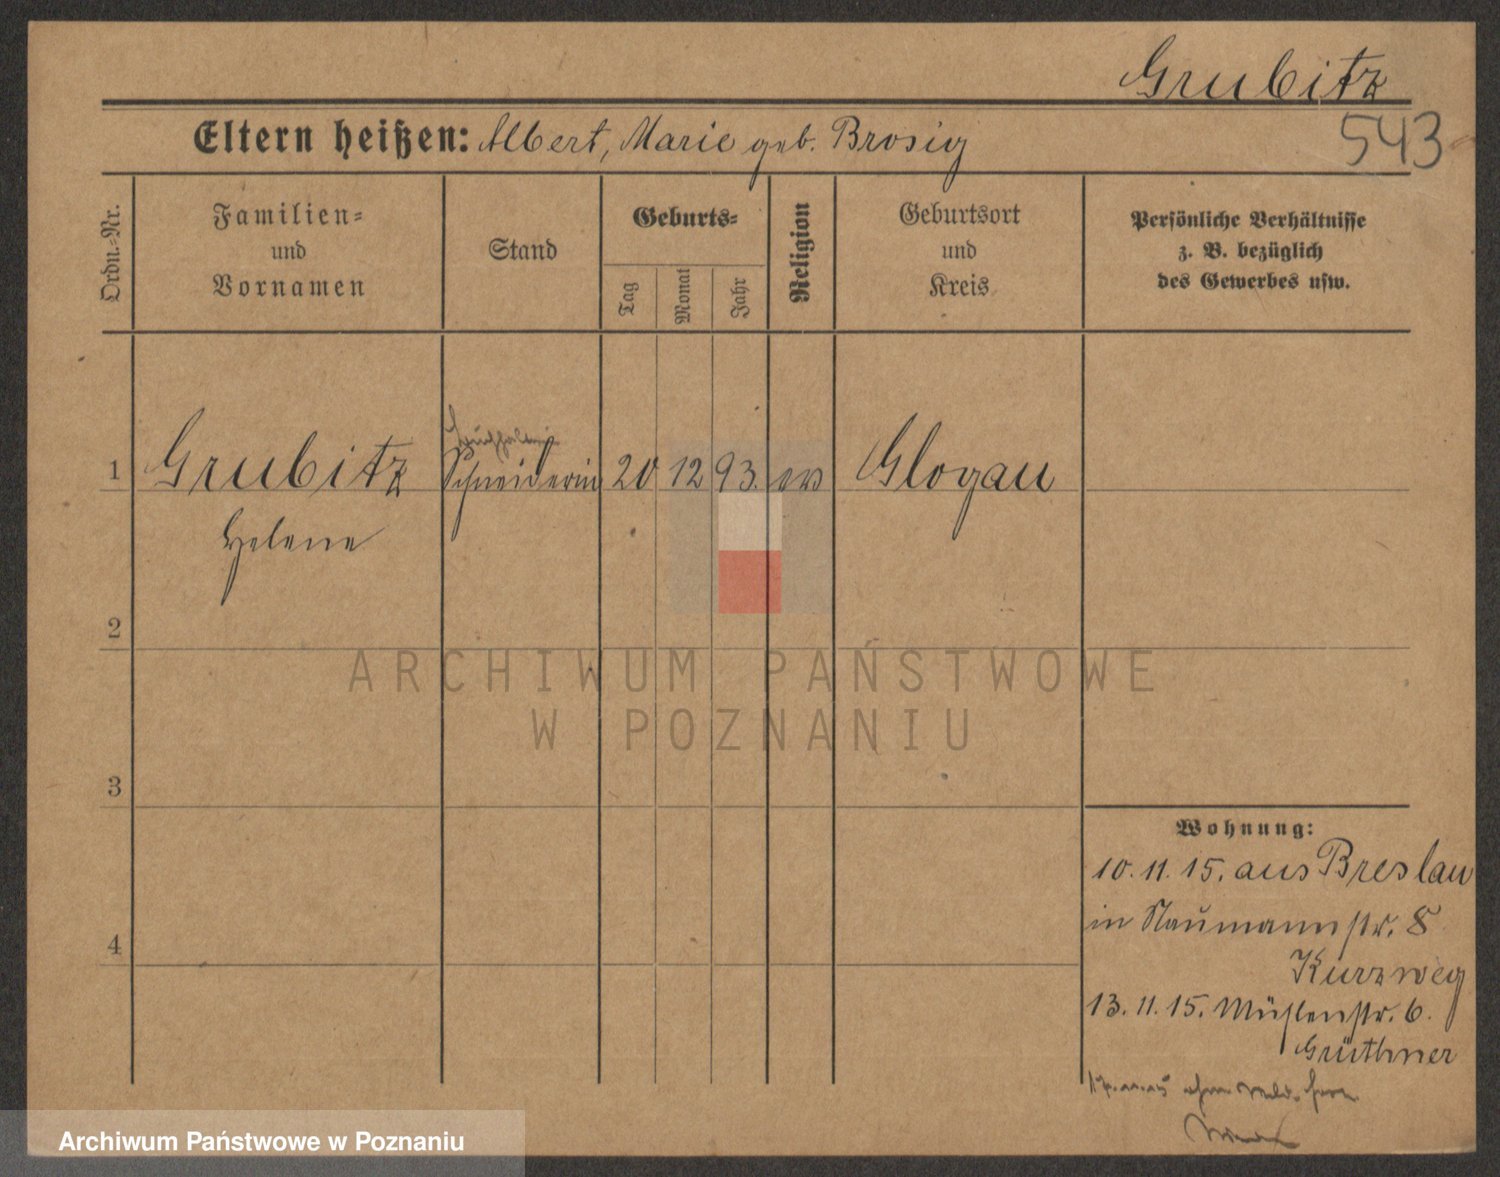 Grubitz
543
Eltern heißen: Albert, Marie geb. Brosig
Ordn.-Nr.
Familien-
und
Vornamen
Stand
Geburts-
Tag
Monat
Jahr
Religion
Geburtsort
und
Kreis
Persönliche Verhältnisse
z. B. bezüglich
des Gewerbes usw.
1
Grubitz
Schneiderin
20
12
93.
ev
Glogau
Helene
2
ARCHIWUM PAŃSTWOWE
W POZNANIU
3
Wohnung:
10. 11. 15. aus Breslau
in Naumannstr. 8
Kurzweg
4
13. 11. 15. Mühlenstr. 6.
Grüthner
Archiwum Państwowe w Poznaniu